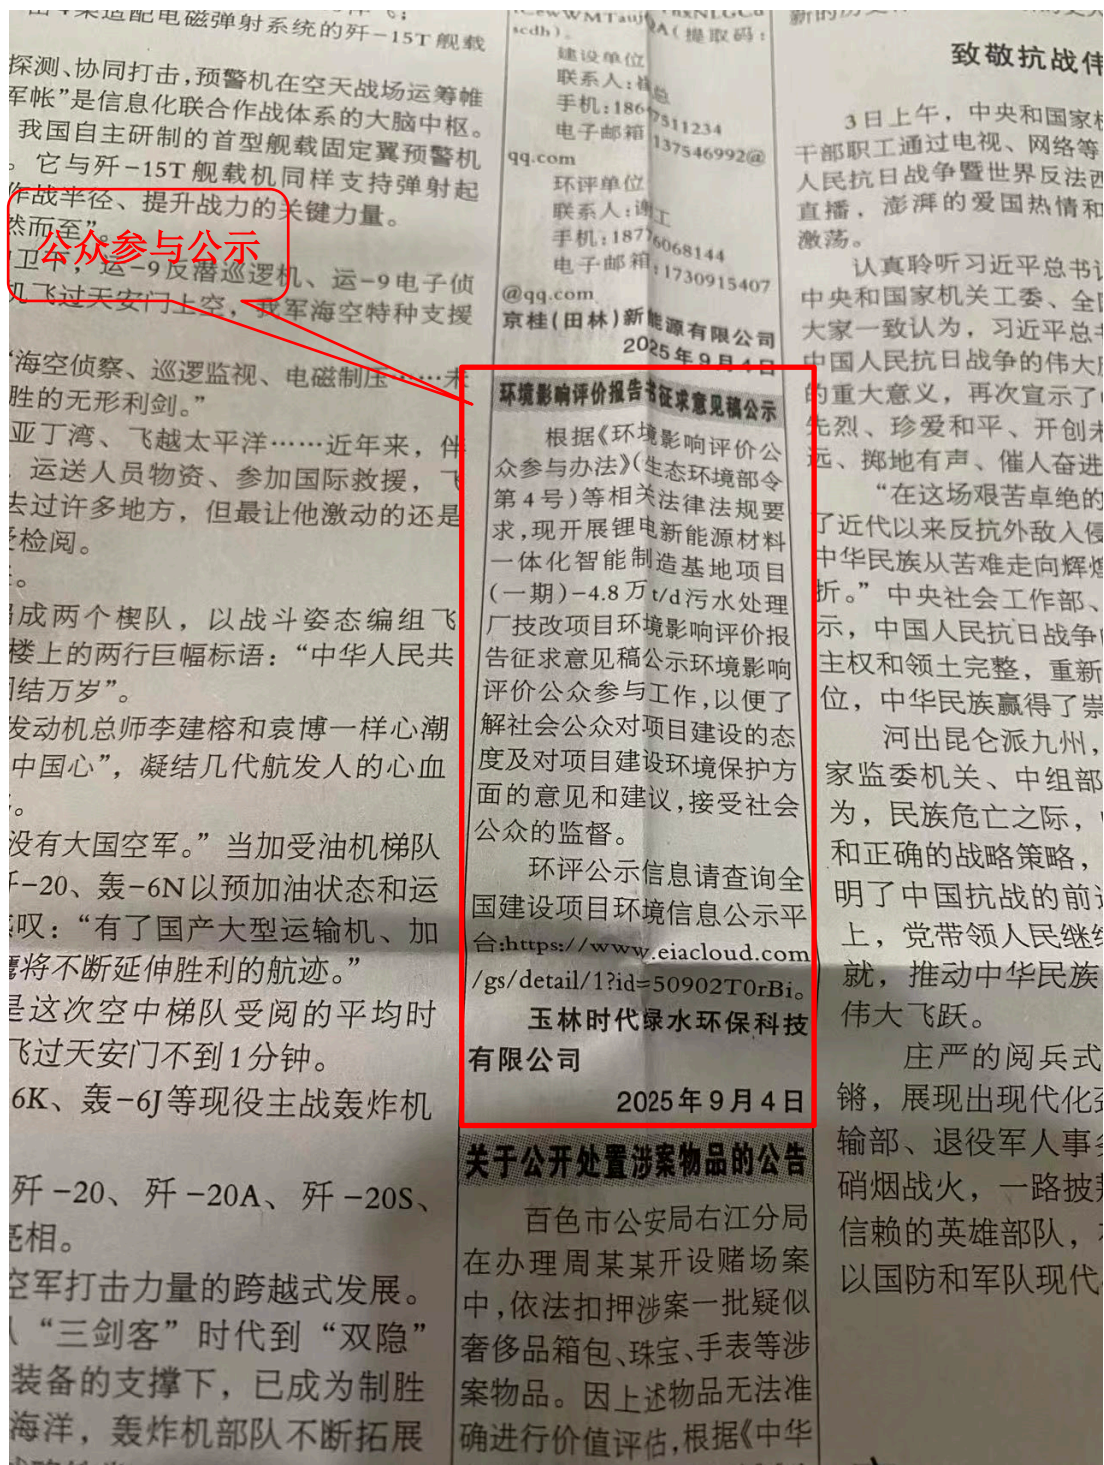 探测、协同打击,预警机在空天战场运筹帷
军帐”是信息化联合作战体系的大脑中枢。
我国自主研制的首型舰载固定翼预警机
。它与歼-15T舰载机同样支持弹射起
作战半径、提升战力的关键力量。
然而至”。
公众参与公示
卫下,运-9反潜巡逻机、运-9电子侦
机飞过天安门上空,我军海空特种支援
“海空侦察、巡逻监视、电磁制压……未
胜的无形利剑。”
亚丁湾、飞越太平洋……近年来,伴
运送人员物资、参加国际救援,飞
去过许多地方,但最让他激动的还是
受检阅。
编成两个楔队,以战斗姿态编组飞
楼上的两行巨幅标语:“中华人民共
团结万岁”。
发动机总师李建榕和袁博一样心潮
中国心”,凝结几代航发人的心血
没有大国空军。”当加受油机梯队
歼-20、轰-6N以预加油状态和运
感叹:“有了国产大型运输机、加
鹰将不断延伸胜利的航迹。”
是这次空中梯队受阅的平均时
飞过天安门不到1分钟。
6K、轰-6J等现役主战轰炸机
歼-20、歼-20A、歼-20S、
亮相。
空军打击力量的跨越式发展。
从“三剑客”时代到“双隐”
装备的支撑下,已成为制胜
海洋,轰炸机部队不断拓展
scdh)。
(提取码:
建设单位
联系人:崔总
手机:186
7511234
电子邮箱
137546992@
qq.com
环评单位
联系人:谢工
手机:18776068144
电子邮箱:1730915407
@qq.com
京桂(田林)新能源有限公司
2025年9月4日
环境影响评价报告书征求意见稿公示
根据《环境影响评价公
众参与办法》(生态环境部令
第4号)等相关法律法规要
求,现开展锂电新能源材料
一体化智能制造基地项目
(一期)-4.8万t/d污水处理
厂技改项目环境影响评价报
告征求意见稿公示环境影响
评价公众参与工作,以便了
解社会公众对项目建设的态
度及对项目建设环境保护方
面的意见和建议,接受社会
公众的监督。
环评公示信息请查询全
国建设项目环境信息公示平
台:https://www.eiacloud.com
/gs/detail/1?id=50902T0rBi。
玉林时代绿水环保科技
有限公司
2025年9月4日
关于公开处置涉案物品的公告
百色市公安局右江分局
在办理周某某开设赌场案
中,依法扣押涉案一批疑似
奢侈品箱包、珠宝、手表等涉
案物品。因上述物品无法准
确进行价值评估,根据《中华
致敬抗战伟
3日上午,中央和国家机
干部职工通过电视、网络等
人民抗日战争暨世界反法西
直播,澎湃的爱国热情和
激荡。
认真聆听习近平总书记
中央和国家机关工委、全国
大家一致认为,习近平总书
中国人民抗日战争的伟大胜
的重大意义,再次宣示了中
先烈、珍爱和平、开创未
远、掷地有声、催人奋进
“在这场艰苦卓绝的
了近代以来反抗外敌入侵
中华民族从苦难走向辉煌
折。”中央社会工作部、
示,中国人民抗日战争的
主权和领土完整,重新
位,中华民族赢得了崇
河出昆仑派九州,
家监委机关、中组部
为,民族危亡之际,
和正确的战略策略,
明了中国抗战的前途
上,党带领人民继续
就,推动中华民族
伟大飞跃。
庄严的阅兵式
锵,展现出现代化劲
输部、退役军人事务
硝烟战火,一路披荆
信赖的英雄部队,
以国防和军队现代化